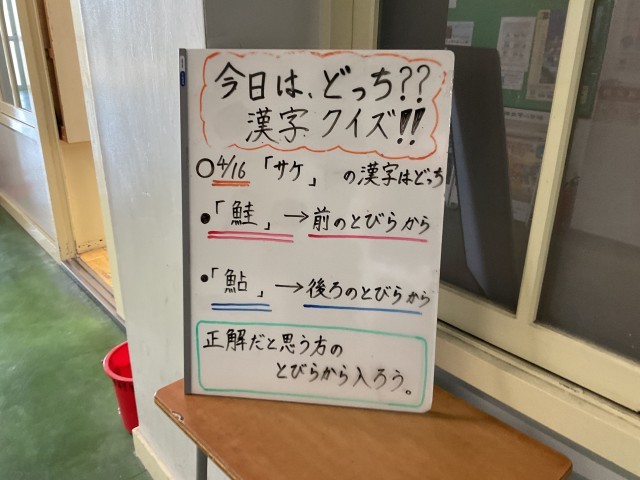 今日は、どっち??
漢字クイズ!!
○4/16「サケ」の漢字はどっち
●「鮭」→前のとびらから
●「鮎」→後ろのとびらから
正解だと思う方の
とびらから入ろう。